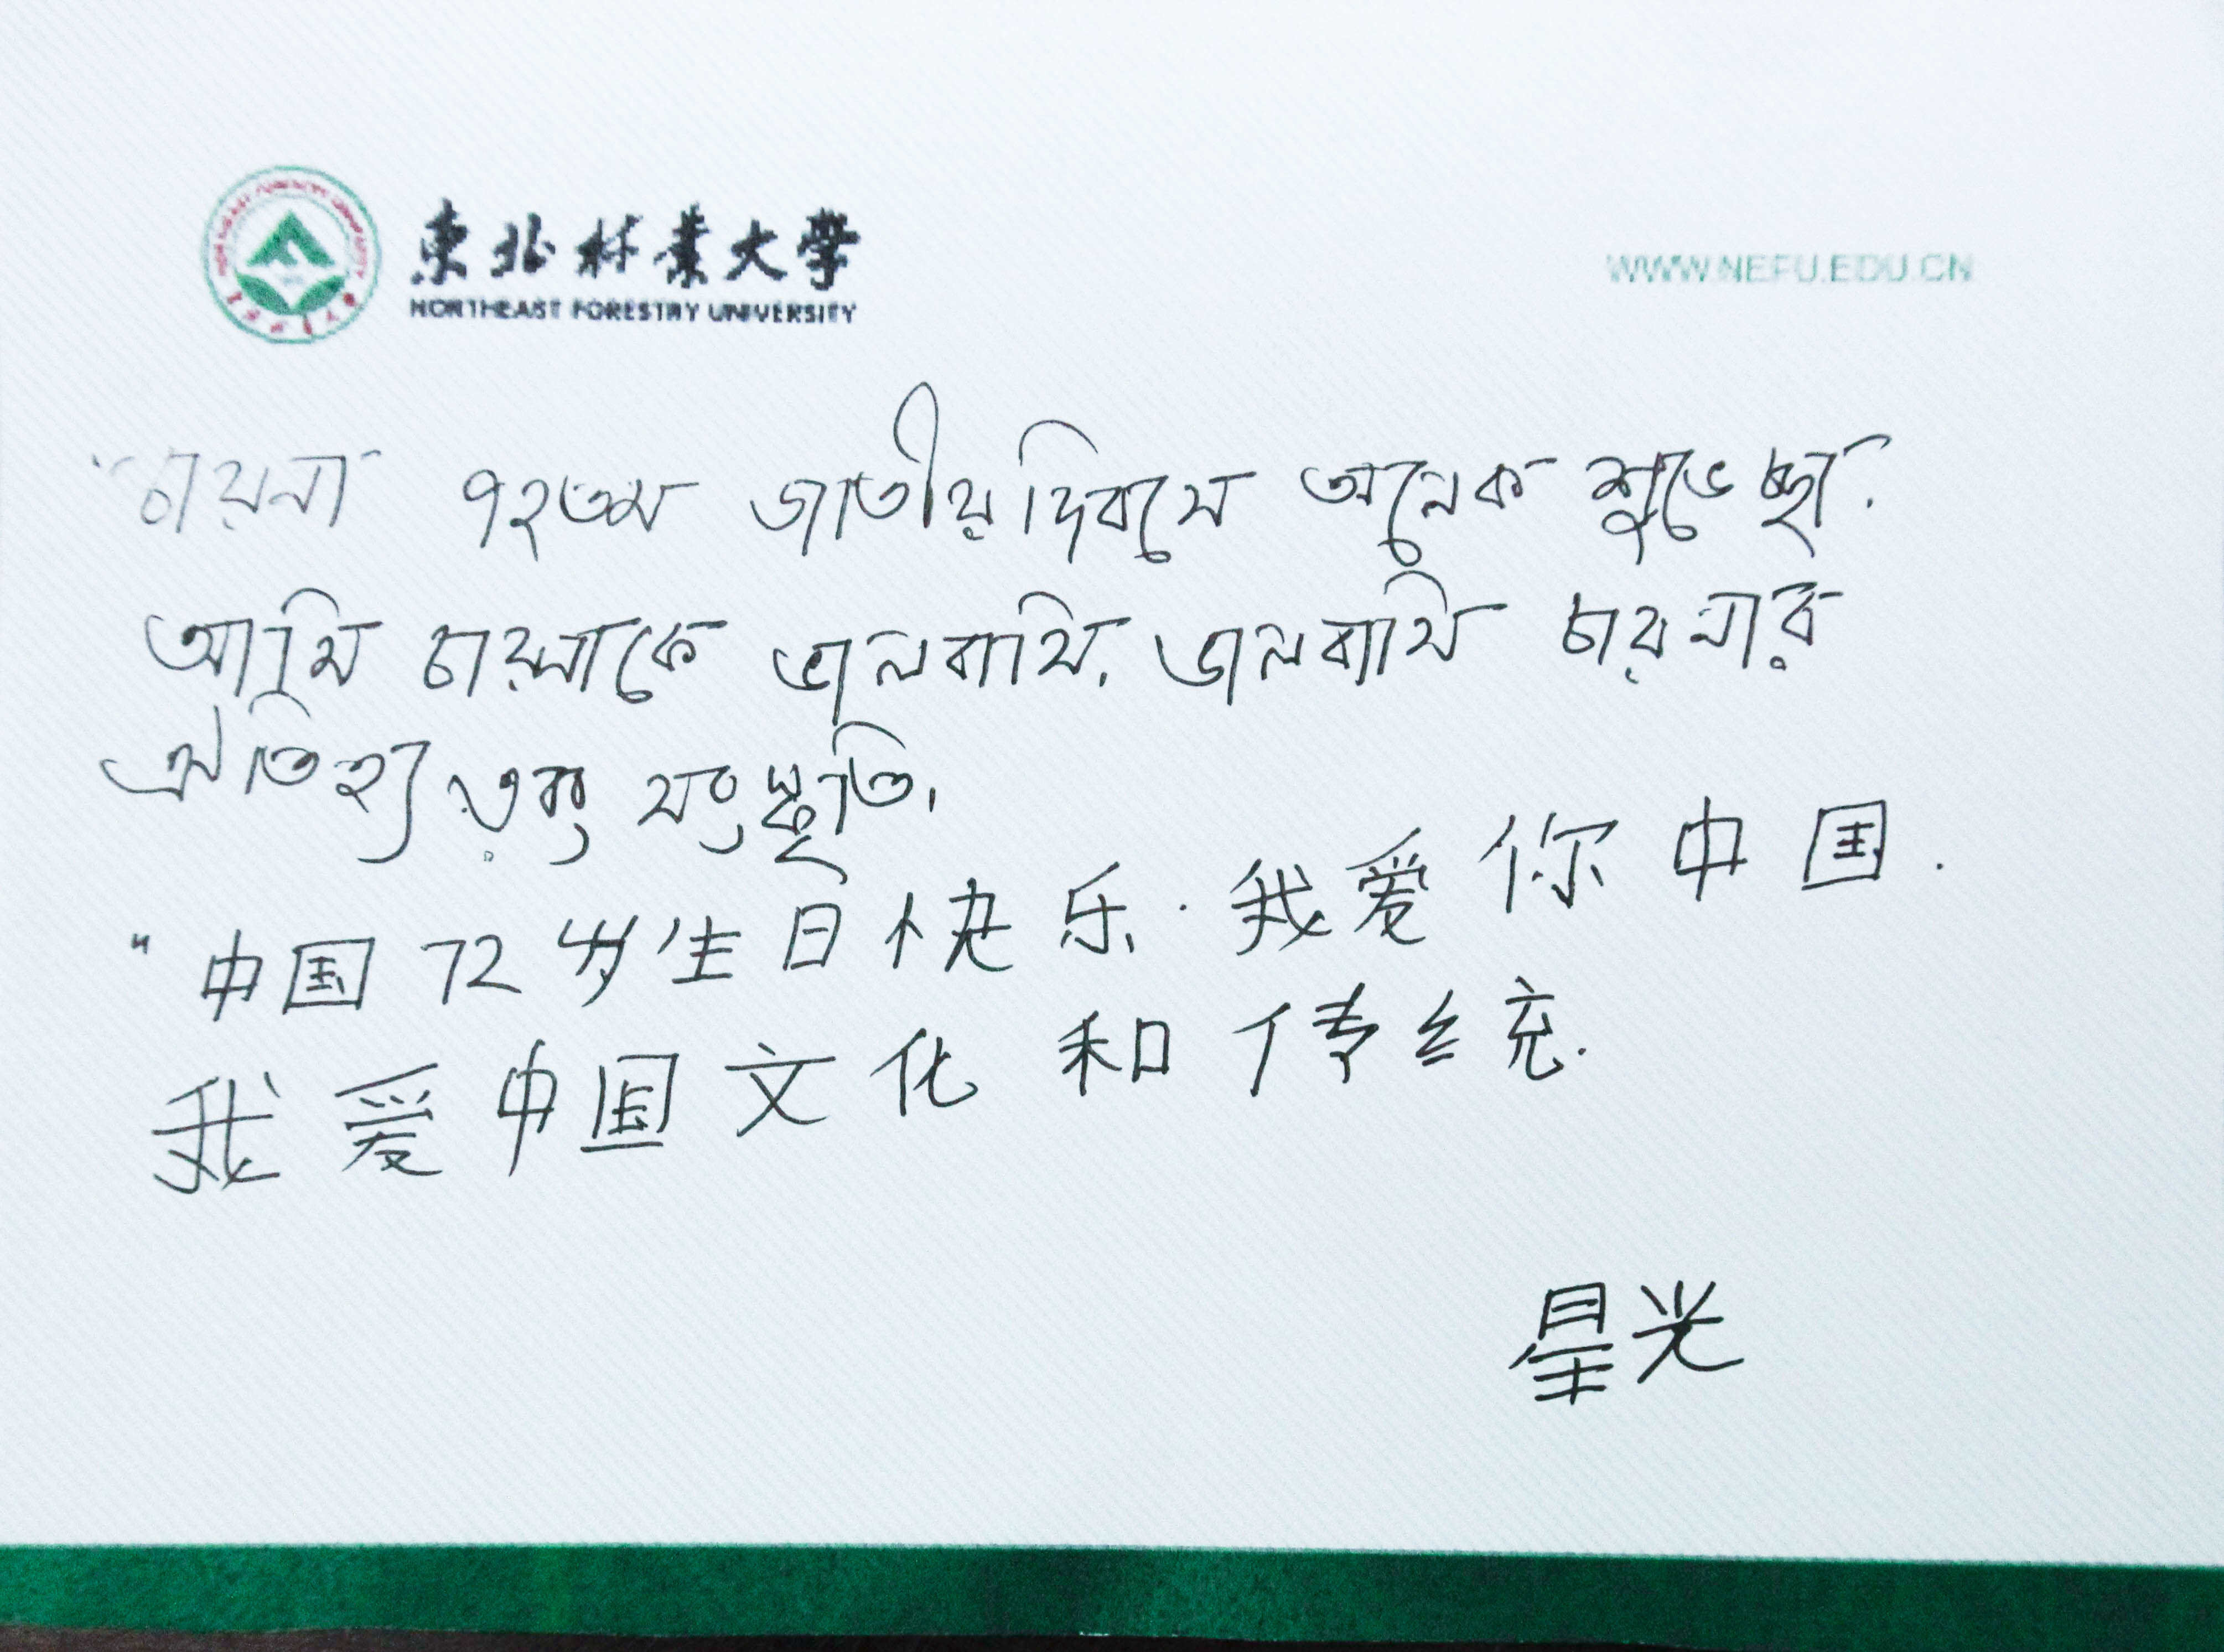 東北林業大學
NORTHEAST FORESTRY UNIVERSITY
WWW.NEFU.EDU.CN
"চায়না ৭২তম জাতীয় দিবসে অনেক শুভেচ্ছা.
আমি চায়নাকে ভালবাসি. ভালবাসি চায়নার
ঐতিহ্য এবং সংস্কৃতি.
"中国72岁生日快乐.我爱你中国.
我爱中国文化和传统.
星光